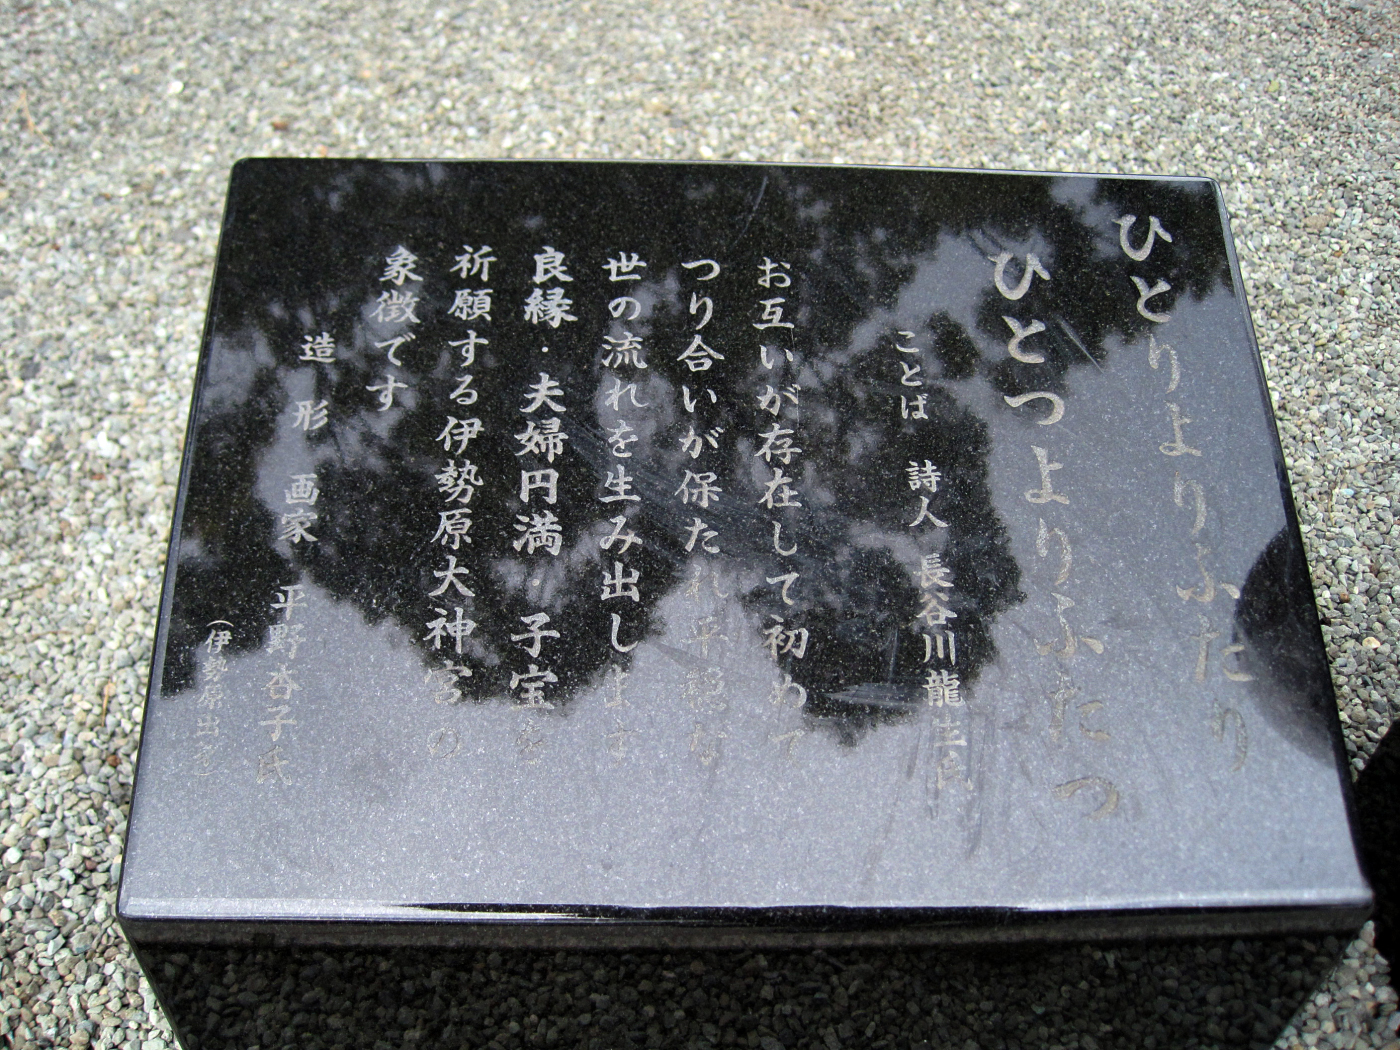 ひとりよりふたり
ひとつよりふたつ
ことば 詩人 長谷川龍生氏
お互いが存在して初めて
つり合いが保たれ平穏な
世の流れを生み出します
良縁・夫婦円満・子宝を
祈願する伊勢原大神宮の
象徴です
造形 画家 平野杏子氏
(伊勢原出身)